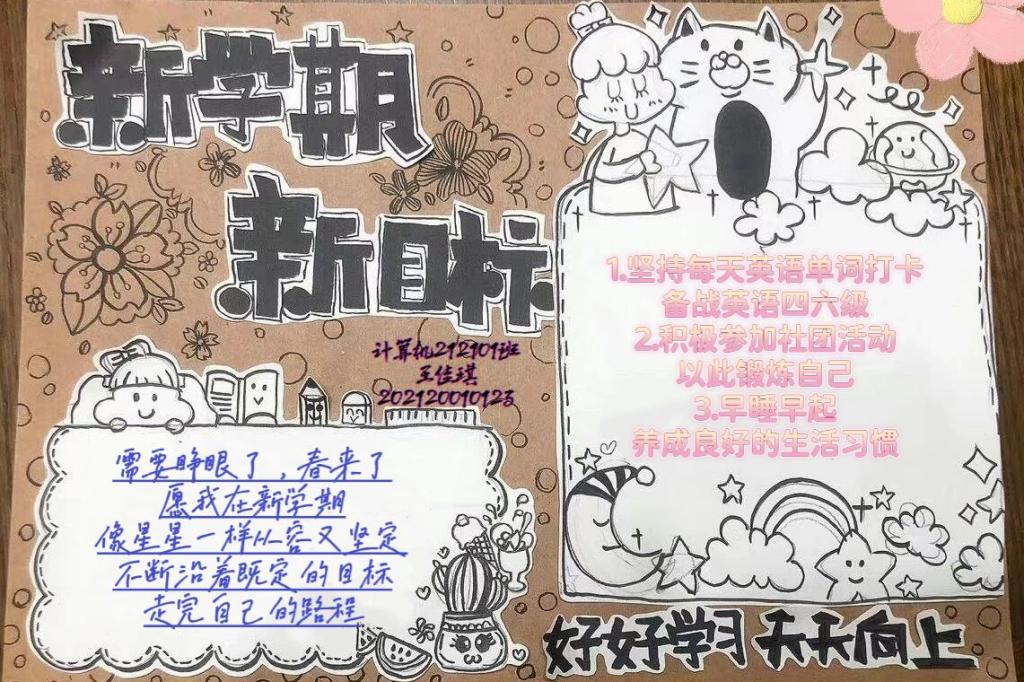 新学期
新目标
计算机212101班
王佳琪
202120010123
需要睁眼了，春来了
愿我在新学期
像星星一样从容又坚定
不断沿着既定的目标
走完自己的路程
1.坚持每天英语单词打卡
备战英语四六级
2.积极参加社团活动
以此锻炼自己
3.早睡早起
养成良好的生活习惯
好好学习 天天向上